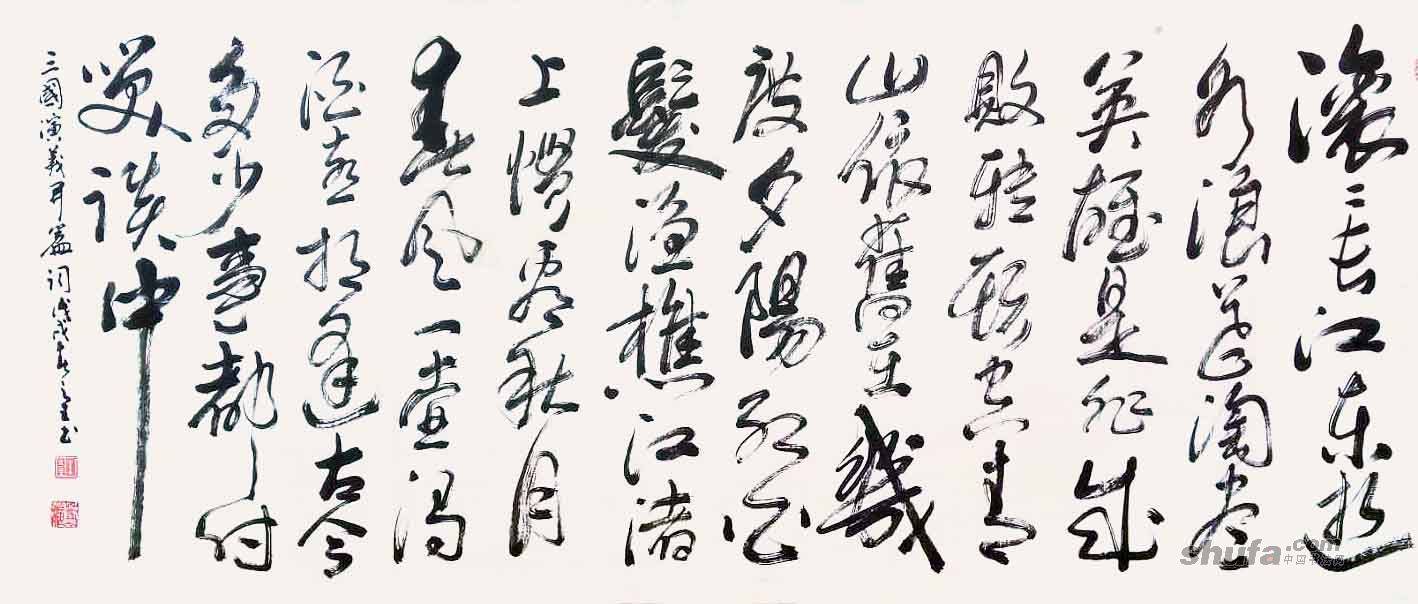 滚々长江东逝
水浪花淘尽
英雄是非成
败转头空青
山依舊在幾
度夕陽红白
髮渔樵江渚
上惯看秋月
春风一壶浊
酒喜相逢古今
多少事都付
笑谈中
三國演義开篇词 戊戌春书
shufa.com
中国书法网